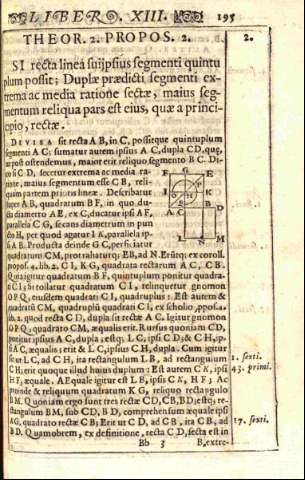 LIBER. XIII. 195
THEOR. 2. PROPOS. 2. 2.
SI recta linea suijpsius segmenti quintu
plum possit: Duplæ prædicti segmenti ex-
trema ac media ratione sectæ, maius seg-
mentum reliqua pars est eius, quæ a princi-
pio, rectæ.
DIVISA sit recta AB, in C, possitque quintuplum
segmenti AC; sumatur autem ipsius A C, dupla CD, quæ,
ut post ostendemus, maior erit reliquo segmento BC. Di-
co si C D, secetur extrema ac media ra-
tione, maius segmentum esse C B, reli-
quam partem prioris lineæ. Describatur
super A B, quadratum BF, in quo du-
cta diametro AE, ex C, ducatur ipsi AF,
parallela C G, secans diametrum in pun
cto H, per quod agatur I K, parallela ip-
si A B. Producta deinde G C, perficiatur
F G E
K H I
A C B D
L N M
quadratum CM, protrahatur; EB, ad N. Erũtq; ex coroll.
propos. 4. lib. 2. C I, K G, quadrata rectarum A C, C B.
Quia igitur quadratum B F, quintuplum ponitur quadra-
ti C I; si tollatur quadratum C I, relinquetur gnomon
O P Q, eiusdem quadrati C I, quadruplus: Est autem &
quadratũ CM, quadruplũ quadrati C I, ex scholio
lib. 2. quod recta C D, dupla sit rectæ A C. Igitur gnomon
O P Q; quadrato CM, æqualis erit. Rursus quoniam CD,
ponitur ipsius A C, dupla; estq; L C, ipsi C D; & C H, ip-
si A C, æqualis; erit & L C, ipsius C H, dupla. Cum igitur
sit ut L C, ad C H, ita rectangulum L B, ad rectangulum
C H; erit quoque illud huius duplum: Est autem C K, ipsi 1. sexti.
H F, æquale. AEquale igitur est L B, ipsis C K, H F; Ac 43. primi.
proinde & reliquum quadratum K G, reliquo rectangulo
B M. Quoniam ergo sunt tres rectæ C D, C B, B D; estq; re-
ctangulum B M, sub C D, B D, comprehensum æquale ipsi
K G, quadrato rectæ C B; Erit ut C D, ad C B, ita C B, ad 17. sexti.
B D. Quamobrem, ex definitione, recta C D, secta est in
Bb 3 B, extre-